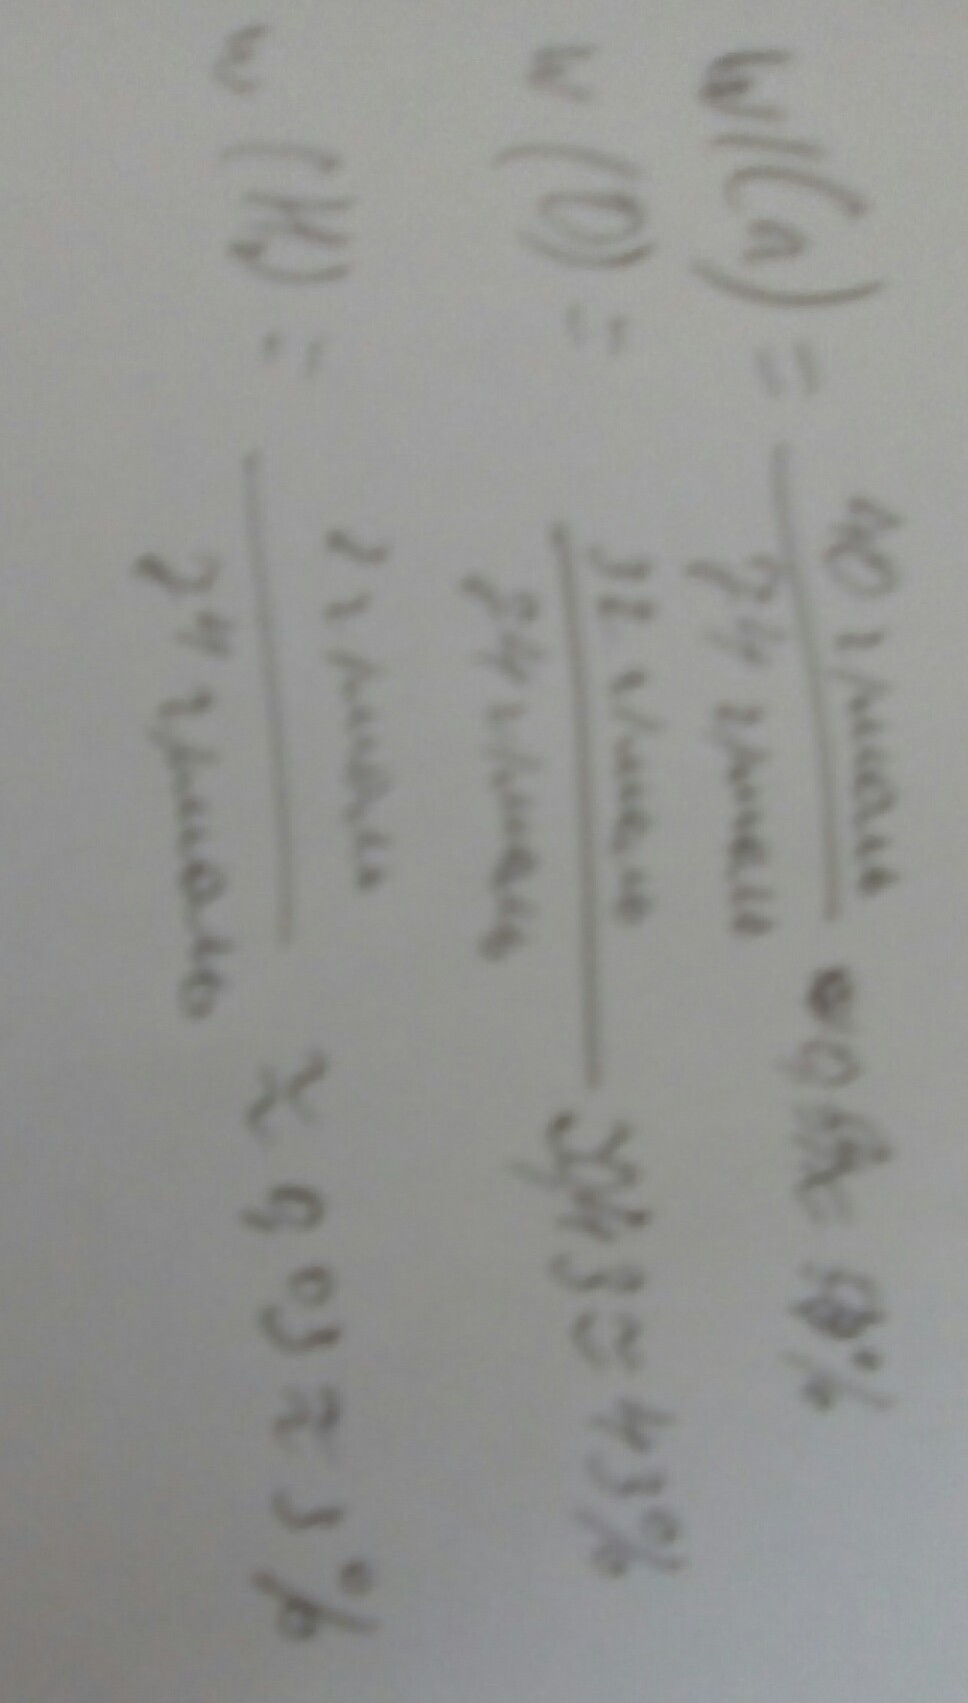 W(Ca) = 40 г/моль / 74 г/моль = 54%
w(O) = 32 г/моль / 74 г/моль 0,43 = 43%
w(H) = 2 г/моль / 74 г/моль ≈ 0,03 = 3%